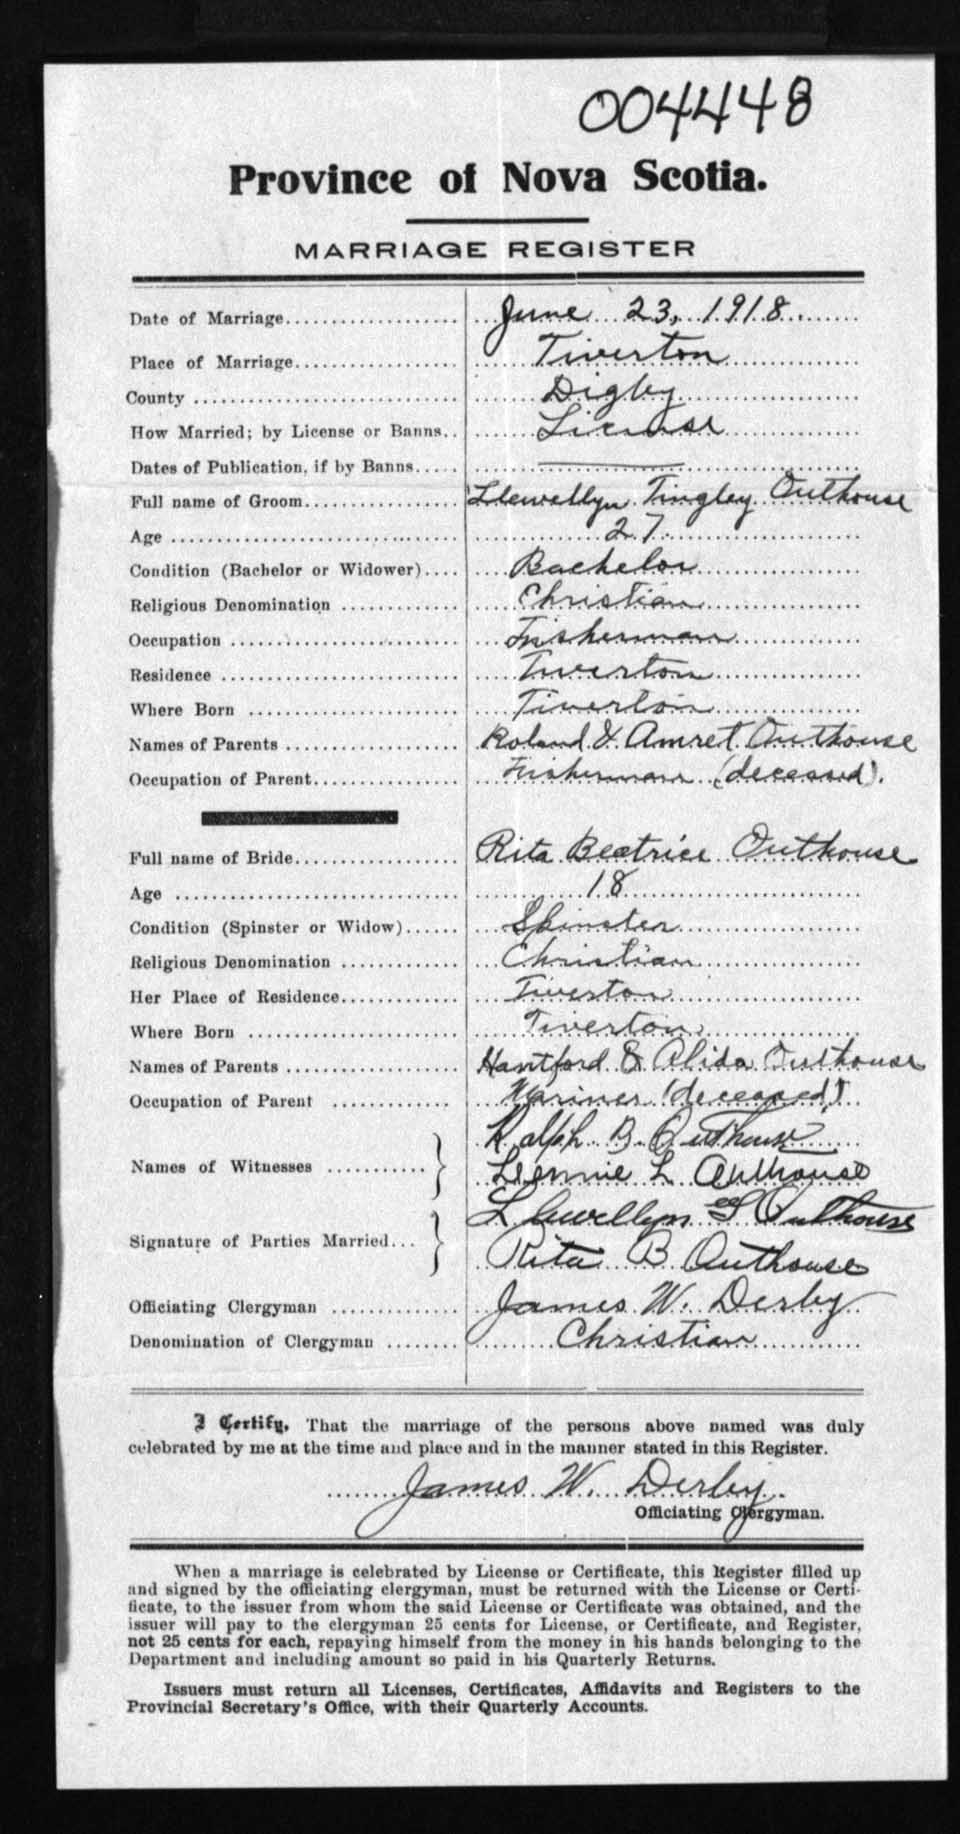 004448
Province of Nova Scotia.
MARRIAGE REGISTER
Date of Marriage.................... June 23, 1918.
Place of Marriage................... Tiverton
County .............................. Digby
How Married; by License or Banns.. License
Dates of Publication, if by Banns..... ———
Full name of Groom................. Llewellyn Tingley Outhouse
Age ................................. 27.
Condition (Bachelor or Widower).... Bachelor
Religious Denomination ............. Christian
Occupation .......................... Fisherman
Residence ........................... Tiverton
Where Born ......................... Tiverton
Names of Parents ................... Roland & Amret Outhouse
Occupation of Parent................ Fisherman (deceased).
Full name of Bride.................. Rita Beatrice Outhouse
Age ................................. 18
Condition (Spinster or Widow)...... Spinster
Religious Denomination ............. Christian
Her Place of Residence.............. Tiverton
Where Born ......................... Tiverton
Names of Parents ................... & Alida Outhouse
Occupation of Parent ............... Mariner (deceased)
Ralph B. Outhouse
Names of Witnesses ........... } L Outhouse
Llewellyn Outhouse
Signature of Parties Married... } Rita B Outhouse
Officiating Clergyman .............. James W. Derby
Denomination of Clergyman ........ Christian
I Certify, That the marriage of the persons above named was duly
celebrated by me at the time and place and in the manner stated in this Register.
James W. Derby.
Officiating Clergyman.
When a marriage is celebrated by License or Certificate, this Register filled up
and signed by the officiating clergyman, must be returned with the License or Certi-
ficate, to the issuer from whom the said License or Certificate was obtained, and the
issuer will pay to the clergyman 25 cents for License, or Certificate, and Register,
not 25 cents for each, repaying himself from the money in his hands belonging to the
Department and including amount so paid in his Quarterly Returns.
Issuers must return all Licenses, Certificates, Affidavits and Registers to the
Provincial Secretary's Office, with their Quarterly Accounts.